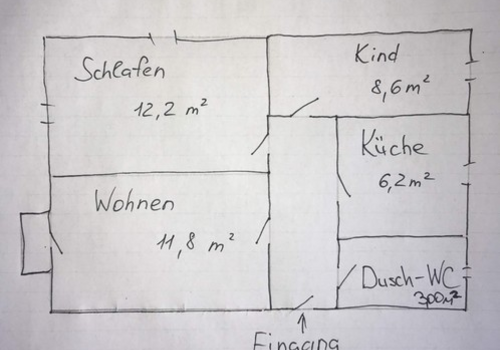 Schlafen
12,2 m²
Kind
8,6 m²
Küche
6,2 m²
Wohnen
11,8 m²
Dusch-WC
3,00 m²
Eingang